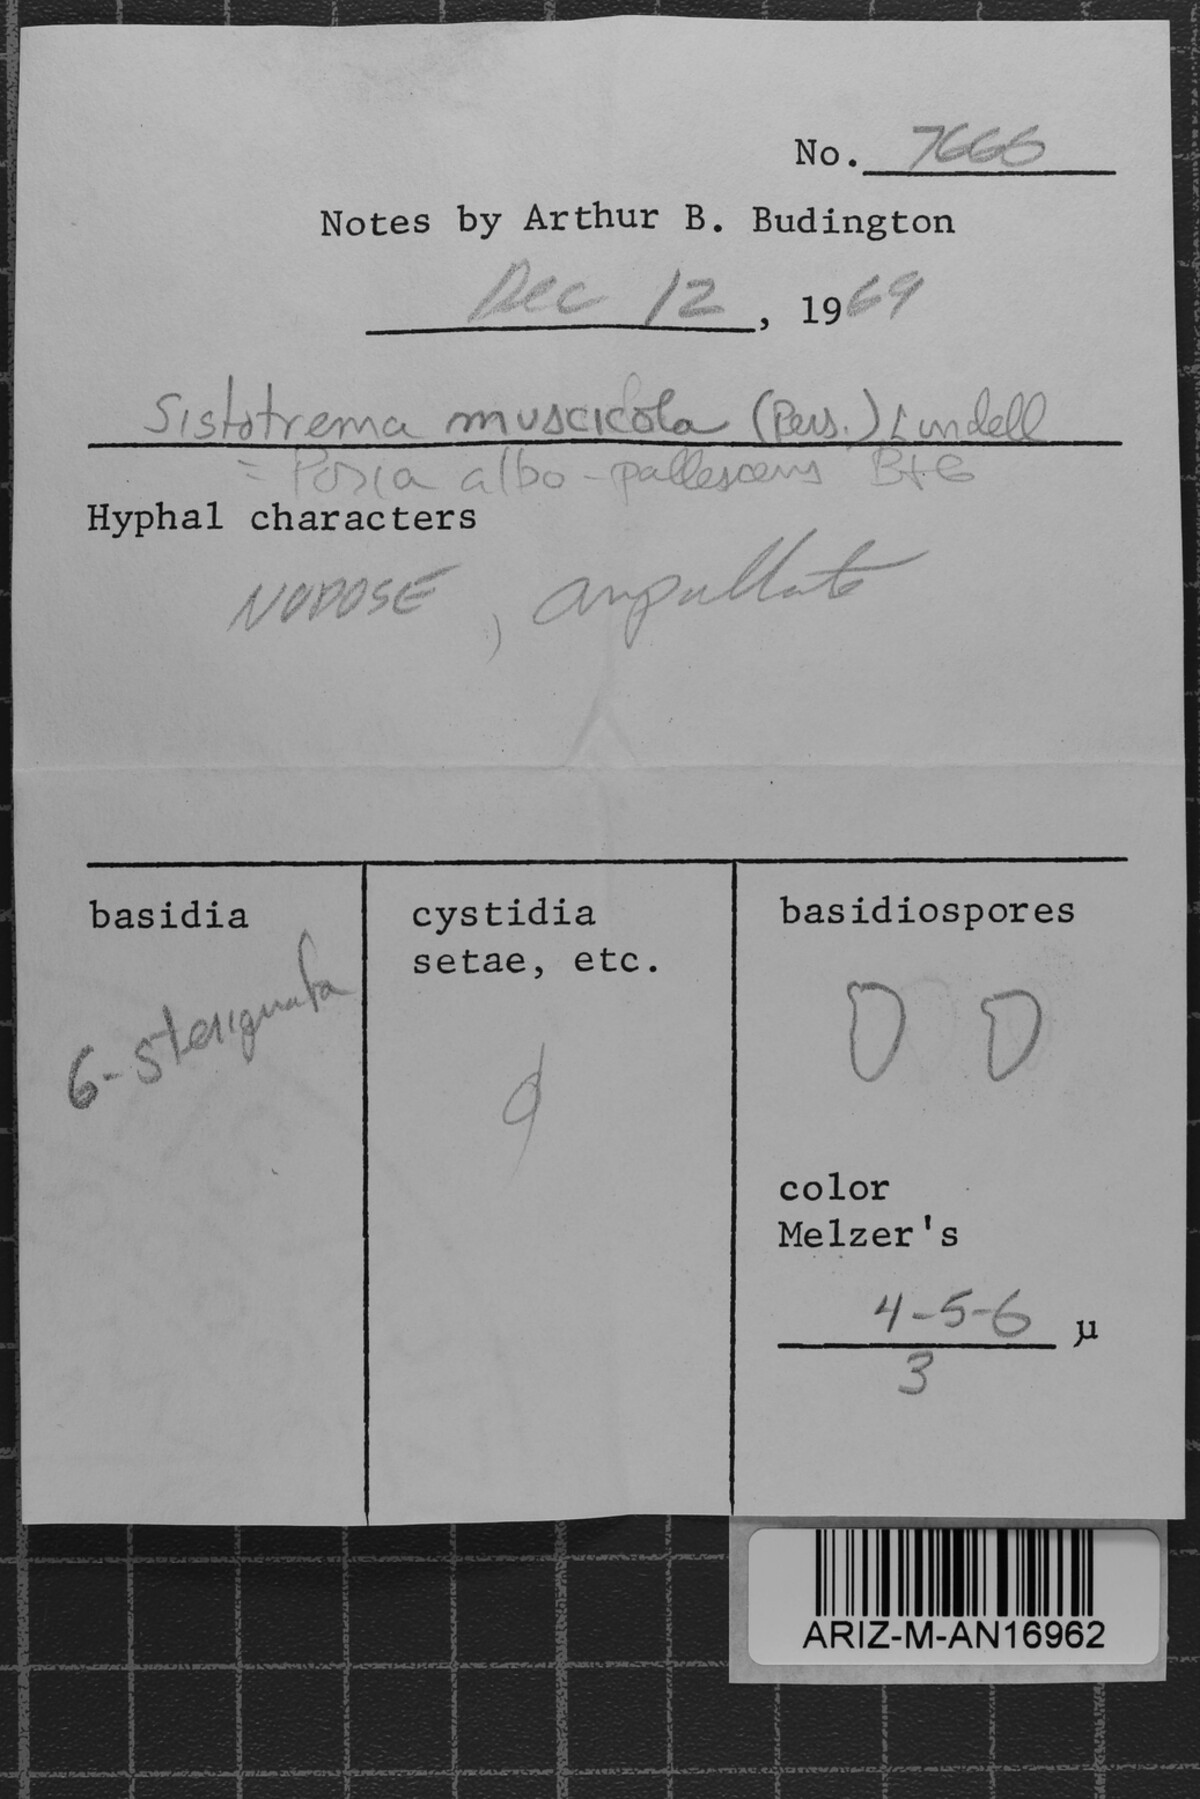 No. 7666
Notes by Arthur B. Budington
Dec 12, 1969
Sistotrema muscicola (Pers.) Lundell
= Poria albo-pallescens B+G
Hyphal characters
NODOSE, ampullate
basidia
6-sterigmata
cystidia
setae, etc.
basidiospores
color
Melzer's
4-5-6 µ
3
ARIZ-M-AN16962